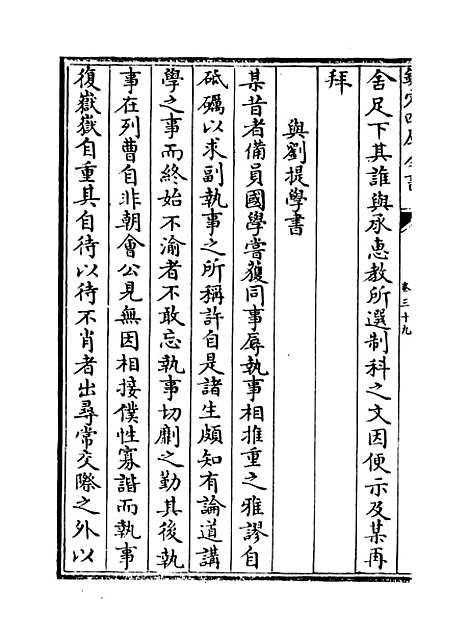 欽定四庫全書
卷三十九
舍足下其誰與承惠教所選制科之文因便示及某再
拜
與劉提學書
某昔者備員國學嘗獲同事辱執事相推重之雅謬自
砥礪以求副執事之所稱許自是諸生頗知有論道講
學之事而終始不渝者不敢忘執事切劘之勤其後執
事在列曹自非朝會公見無因相接僕性寡諧而執事
復嶽嶽自重其自待以待不肖者出尋常交際之外以